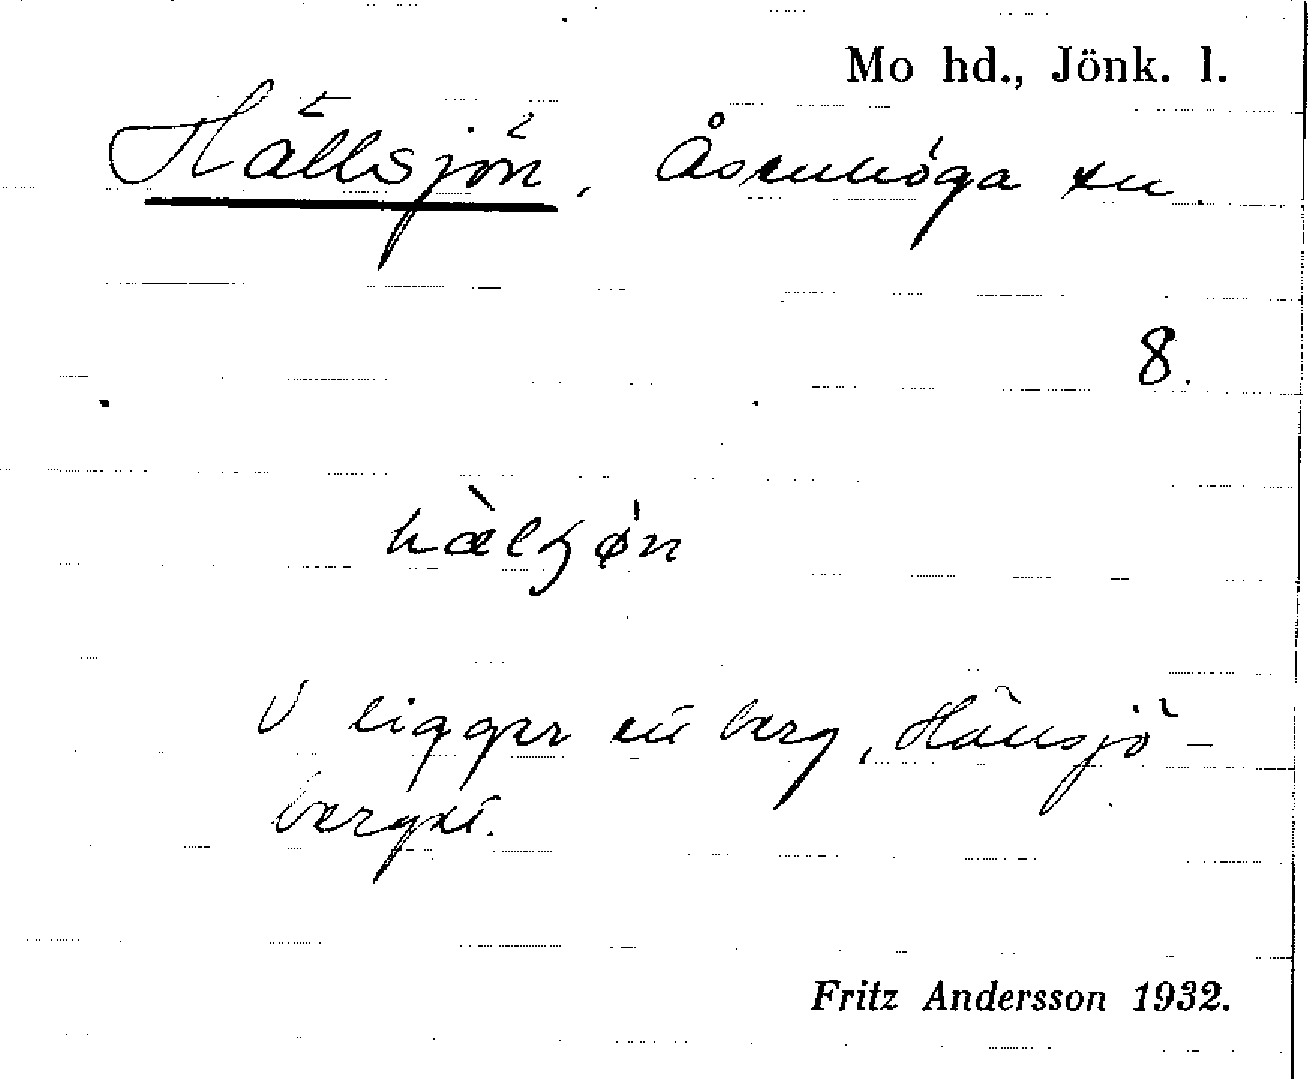 Mo hd., Jönk. l.
Hällsjön, Åsenhöga sn.
8.
hæl̀ʒøn
V ligger ett berg, Hällsjö-
berget.
Fritz Andersson 1932.